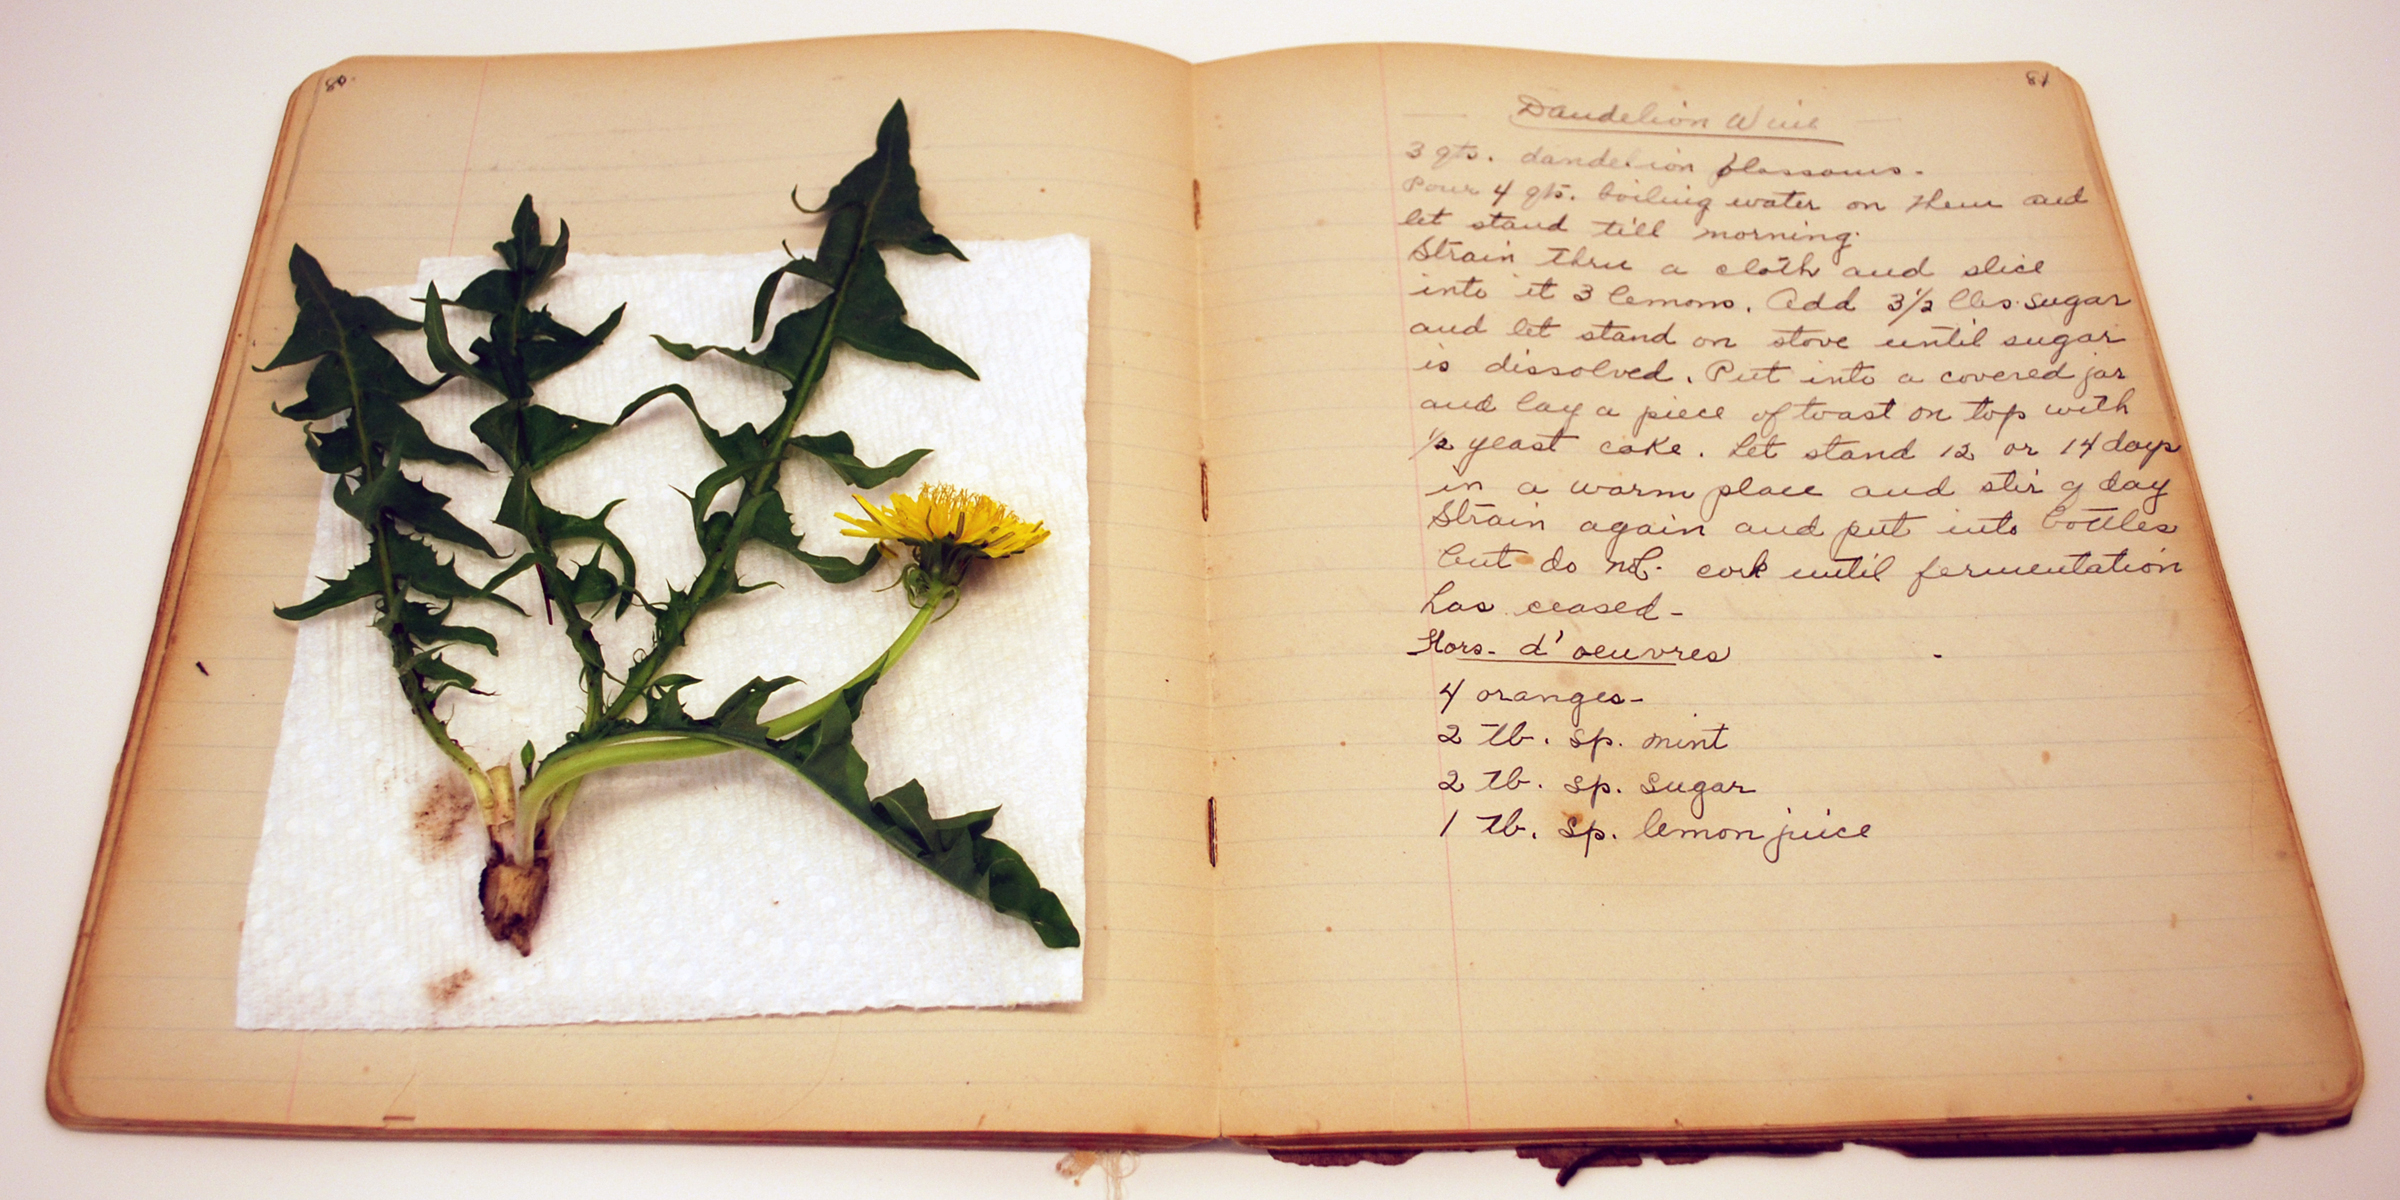 80
81
Dandelion Wine
3 qts. dandelion blossoms.
Pour 4 qts. boiling water on them and
let stand till morning.
Strain thru a cloth and slice
into it 3 lemons. Add 3 1/2 lbs. sugar
and let stand on stove until sugar
is dissolved. Put into a covered jar
and lay a piece of toast on top with
1/2 yeast cake. Let stand 12 or 14 days
in a warm place and stir day
Strain again and put into bottles
but do not cork until fermentation
has ceased-
Hors- d'oeuvres
4 oranges-
2 tb. sp. mint
2 tb. sp. sugar
1 tb. sp. lemon juice